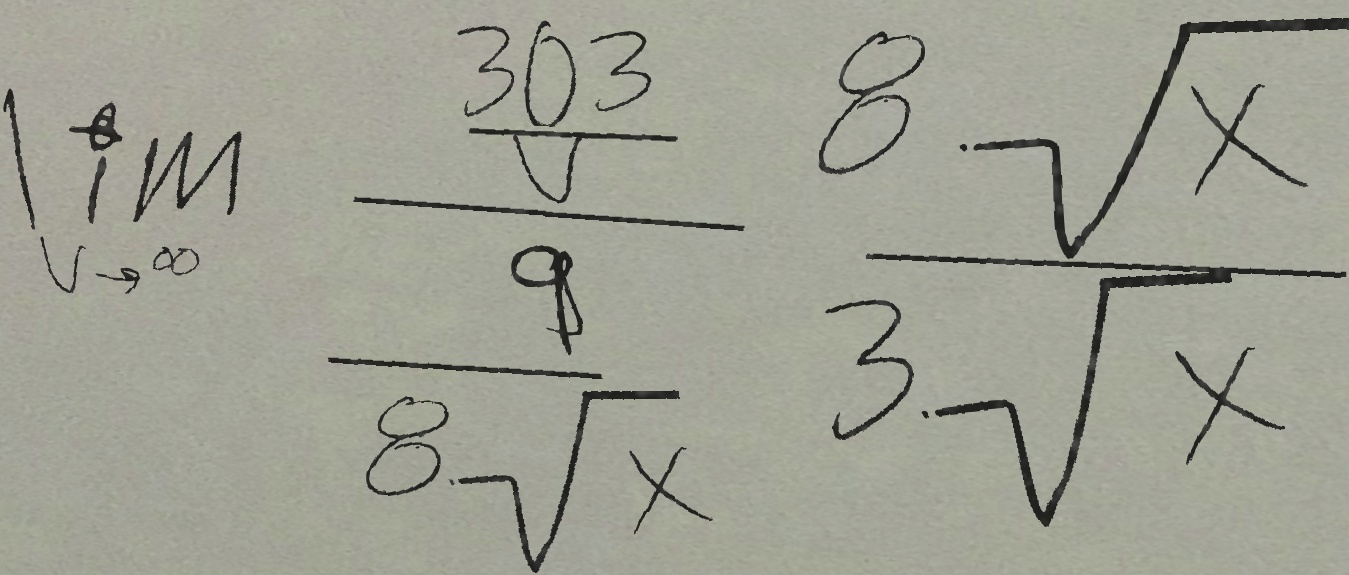 \lim_{v \to \infty} \frac{\frac{\frac{303}{v}}{9}}{8 \cdot \sqrt{x}} \frac{8 \cdot \sqrt{x}}{3 \cdot \sqrt{x}}